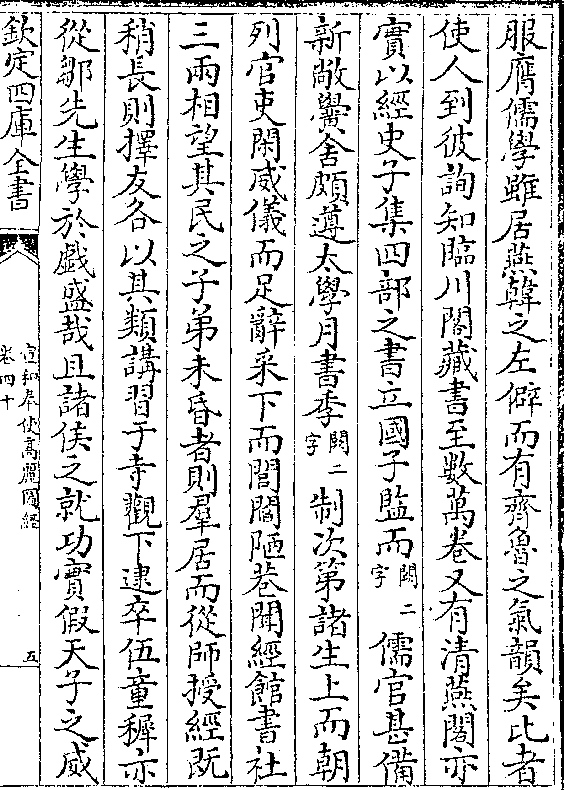 服膺儒學雖居燕韓之左僻而有齊魯之氣韻矣比者
使人到彼詢知臨川閣藏書至數萬卷又有清燕閣亦
實以經史子集四部之書立國子監而闕二字儒官甚備
新敞黌舍頗遵太學月書季闕二字制次第諸生上而朝
列官吏閑威儀而足辭采下而閭閻陋巷閈經館書社
三兩相望其民之子弟未昏者則羣居而從師授經既
稍長則擇友各以其類講習于寺觀下逮卒伍童穉亦
從鄒先生學於戲盛哉且諸侯之就功實假天子之威
欽定四庫全書
宣和奉使髙麗圖經
卷四十
五